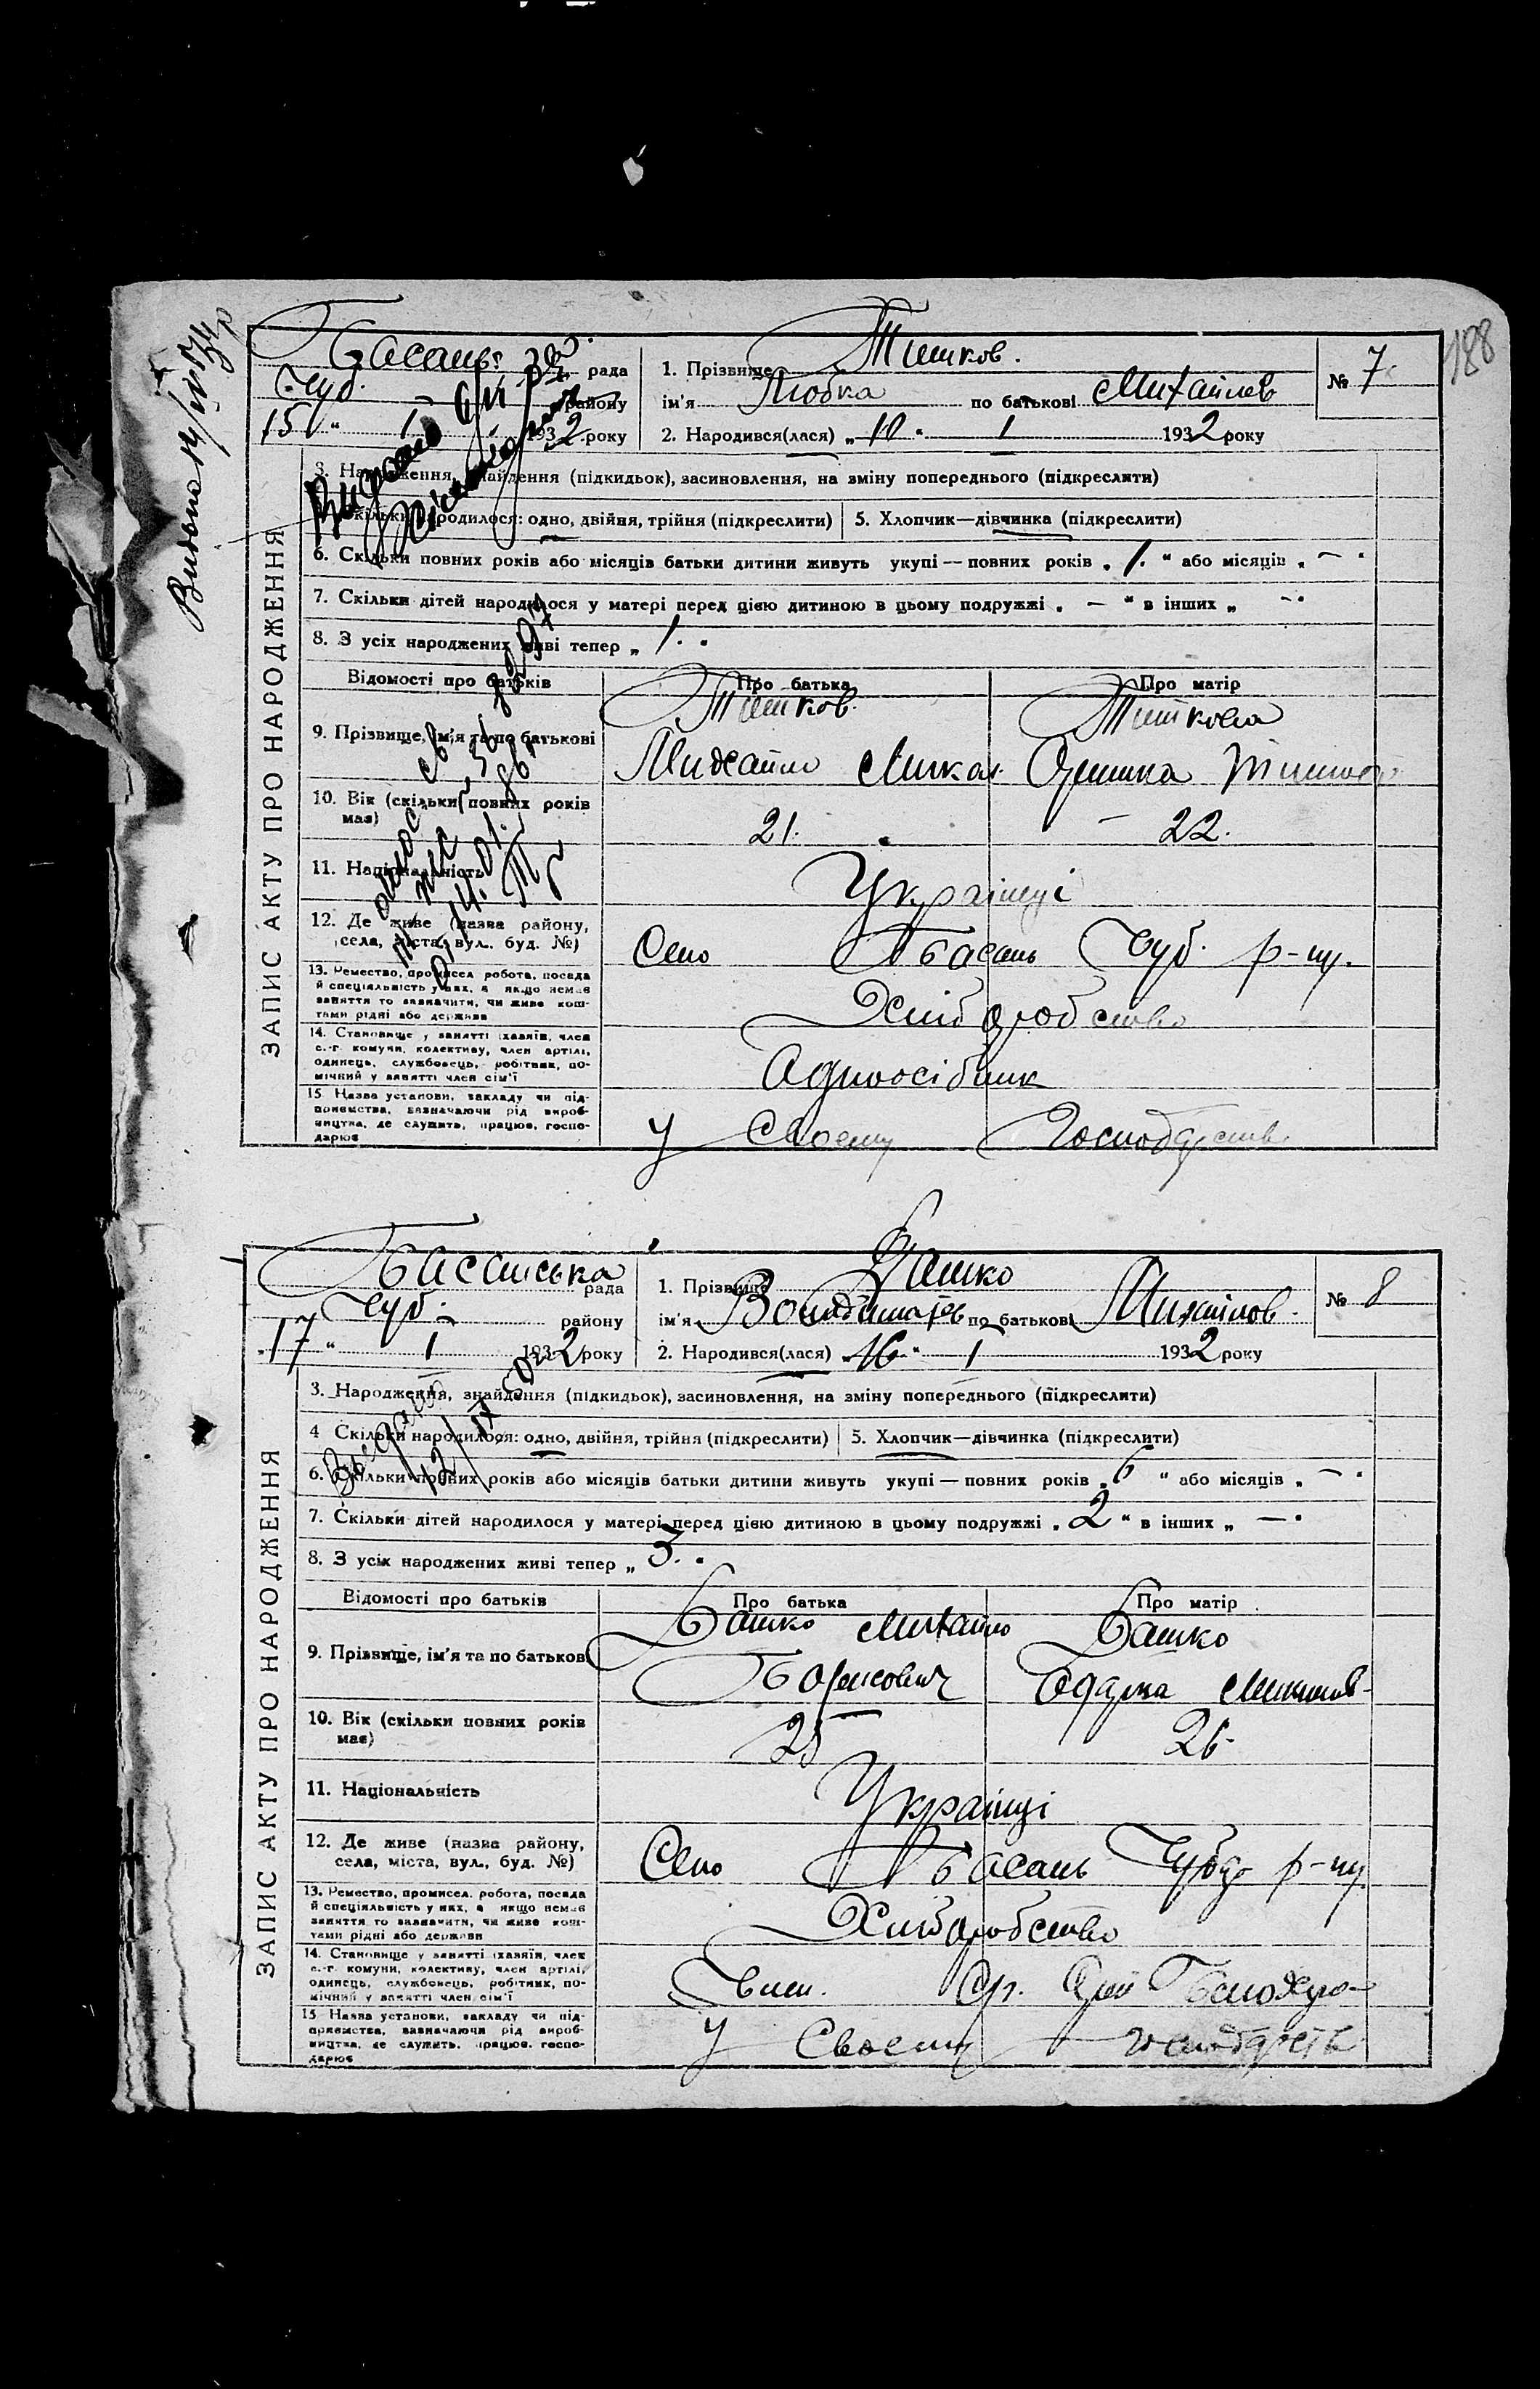 188
Басань рада
Чуб. району
15 " 1 1932 року
1. Прізвище Тишков.
ім'я Любка по батькові Михайлов
2. Народився(лася) „ 10 " 1 1932 року
№ 7
ЗАПИС АКТУ ПРО НАРОДЖЕННЯ
3. Народження, знайдення (підкидьок), засиновлення, на зміну попереднього (підкреслити)
Скільки народилося: одно, двійня, трійня (підкреслити) 5. Хлопчик—дівчинка (підкреслити)
6. Скільки повних років або місяців батьки дитини живуть укупі — повних років „ 1. " або місяців „ — "
7. Скільки дітей народилося у матері перед цією дитиною в цьому подружжі „ — " в інших „ — "
8. З усіх народжених живі тепер „ 1. "
Відомості про батьків Про батька Про матір
9. Прізвище, ім'я та по батькові
Тишков Тишкова
Михайло Оришка
10. Вік (скільки повних років має) 21. 22.
11. Національність Українці
12. Де живе (назва району, села, міста, вул. буд. №) Село Басань Чуб. р-ну.
13. Ремество, промисел робота, посада й спеціяльність у них, а якщо немає заняття то зазначити, чи живе коштами рідні або держави
Хліборобство
14. Становище у занятті (хазяїн, член с.-г. комуни, колективу, член артілі, одинець, службовець, робітник, помічний у занятті член сім'ї
Одноосібник
15. Назва установи, закладу чи підприємства, зазначаючи рід виробництва, де служить, працює, господарює
У Своему Господарстві
Басанська рада
Чуб. району
17 " 1 1932 року
1. Прізвище Башко
ім'я Володимир по батькові Михайлов.
2. Народився(лася) „ 16 " 1 1932 року
№ 8
ЗАПИС АКТУ ПРО НАРОДЖЕННЯ
3. Народження, знайдення (підкидьок), засиновлення, на зміну попереднього (підкреслити)
4 Скільки народилося: одно, двійня, трійня (підкреслити) 5. Хлопчик—дівчинка (підкреслити)
6. Скільки повних років або місяців батьки дитини живуть укупі — повних років „ 6 " або місяців „ — "
7. Скільки дітей народилося у матері перед цією дитиною в цьому подружжі „ 2 " в інших „ — "
8. З усіх народжених живі тепер „ 3. "
Відомості про батьків Про батька Про матір
9. Прізвище, ім'я та по батькові
Башко Михайло Башко
Борисович Одарка
10. Вік (скільки повних років має) 25 26
11. Національність Українці
12. Де живе (назва району, села, міста, вул., буд. №) Село Басань р-ну
13. Ремество, промисел. робота, посада й спеціяльність у них, а якщо немає заняття то зазначити, чи живе коштами рідні або держави
Хліборобство
14. Становище у занятті (хазяїн, член с.-г. комуни, колективу, член артілі, одинець, службовець, робітник, помічний у занятті член сім'ї
15 Назва установи, закладу чи підприємства, зазначаючи рід виробництва, де служить, працює, господарює
У Своему господарстві